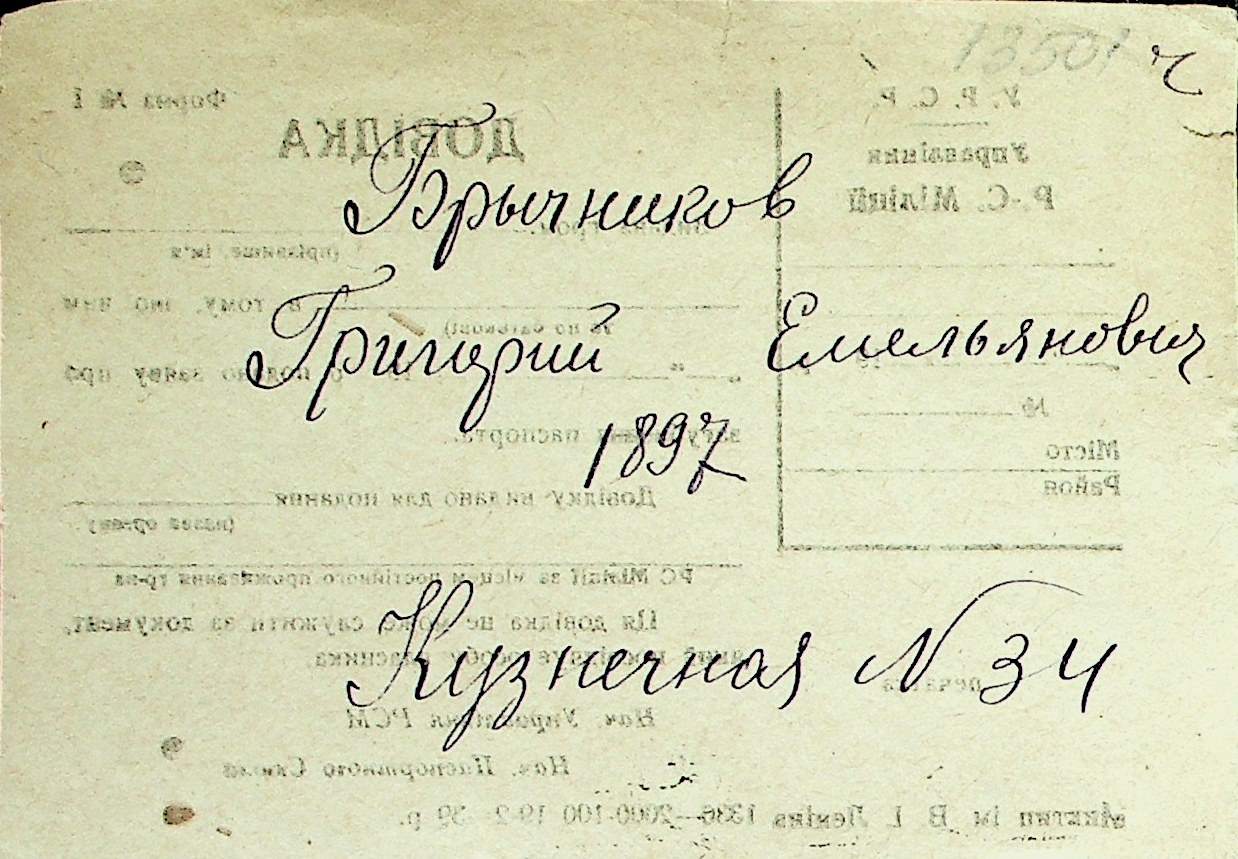 13501 ч
Брычников
Григорий Емельянович
1897
Кузнечная N 34
У. Р. С. Р.
Управління
Р.-С. Міліції
№
Місто
Район
Форма № 1
ДОВІДКА
(прізвище, ім'я
та по батькові)
в тому, що ним
подано заяву про
паспорта.
Довідку видано для подання
(назва органу)
РС Міліції за місцем постійного проживання гр-на
Ця довідка не може служити за документ,
особу власника.
печатка
Нач. Управління РСМ
Нач. Паспортного Стола
ім. В. І. Леніна 1336—2000-100 19-2 39 р.